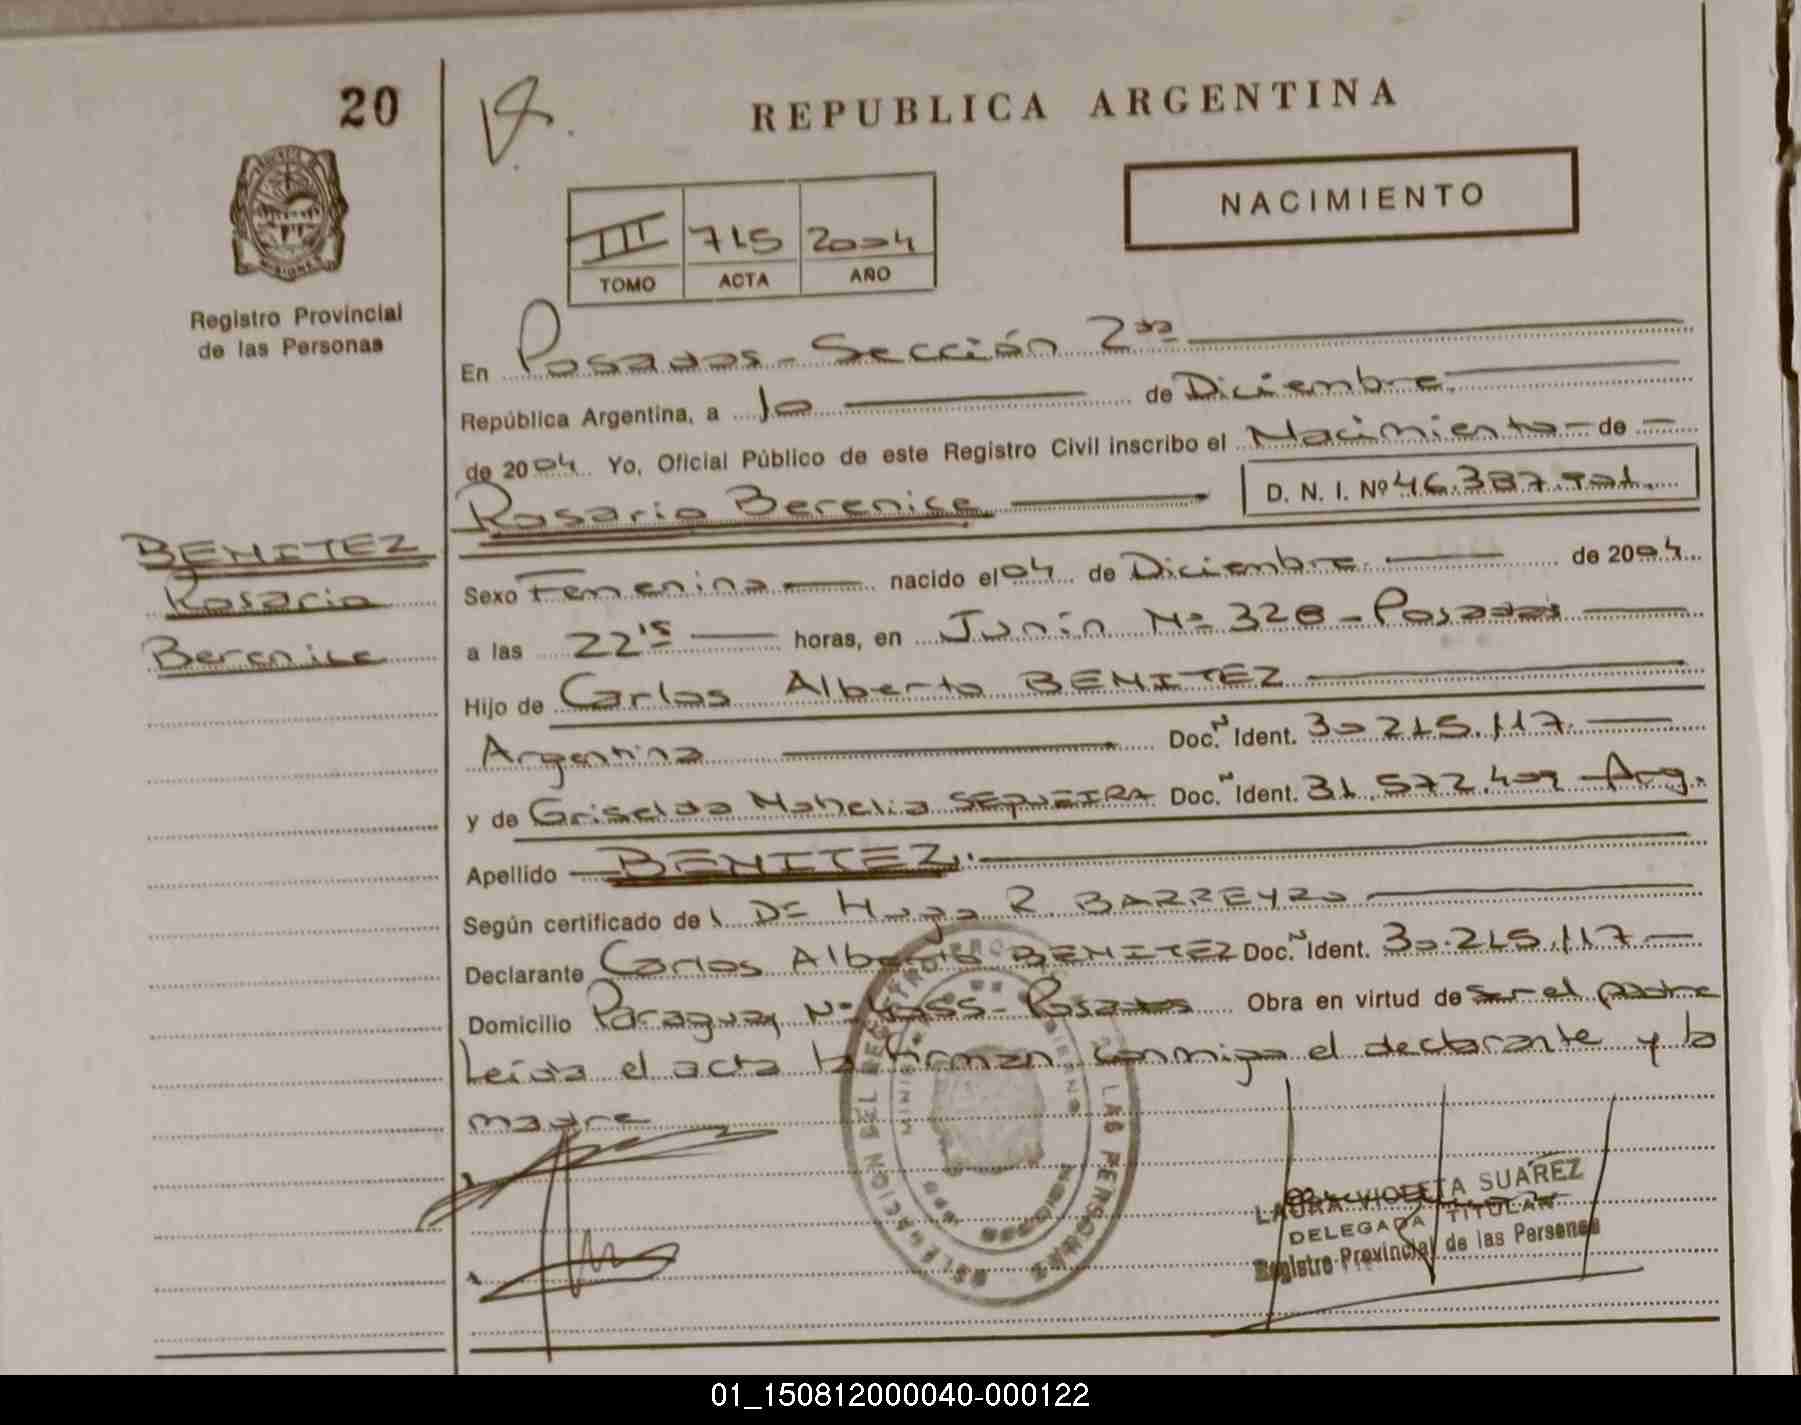 20
REPUBLICA ARGENTINA
NACIMIENTO
III 715 2004
TOMO ACTA AÑO
Registro Provincial
de las Personas
En Posadas - Sección 2da
República Argentina, a 10 de Diciembre
de 2004 Yo, Oficial Público de este Registro Civil inscribo el Nacimiento de
Rosario Berenice D. N. I. Nº 46.387.
BENITEZ
Rosario
Berenice
Sexo Femenina nacido el 04 de Diciembre de 2004
a las 22 15 horas, en Junín Nº 328 - Posadas
Hijo de Carlos Alberto BENITEZ
Argentina Doc. N Ident. 30.215.117.
y de Griselda Mahelia SEQUEIRA Doc. N Ident. 31.572.409 - Arg.
Apellido BENITEZ.
Según certificado de l Dr Hugo R. BARREYRO
Declarante Carlos Alberto BENITEZ Doc. N Ident. 30.215.117
Domicilio Paraguay Nº - Posadas Obra en virtud de ser el padre
Leída el acta la firman conmigo el declarante y la
madre
DELEGACION DEL REGISTRO PROV LAS PERSONAS
LAURA VIOLETA SUAREZ
DELEGADA TITULAR
Registro Provincial de las Personas
01_150812000040-000122